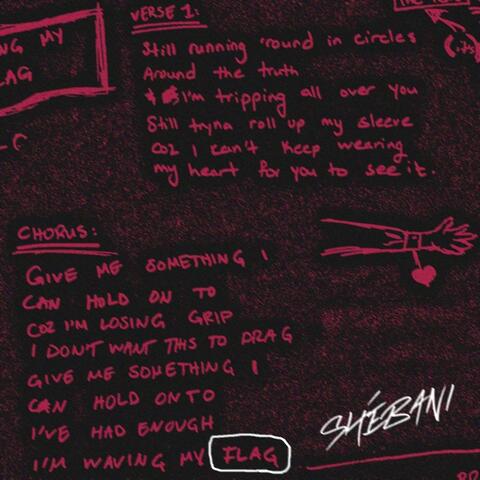 NG MY
LAG
VERSE 1:
(it's
Still running 'round in circles
Around the truth
I'm tripping all over you
Still tryna roll up my sleeve
Coz I can't keep wearing
my heart for you to see it.
CHORUS:
GIVE ME SOMETHING I
CAN HOLD ON TO
COZ I'M LOSING GRIP
I DON'T WANT THS TO DRAG
GIVE ME SOMETHING I
CAN HOLD ONTO
I'VE HAD ENOUGH
I'M WAVING MY FLAG
SHÉBANI